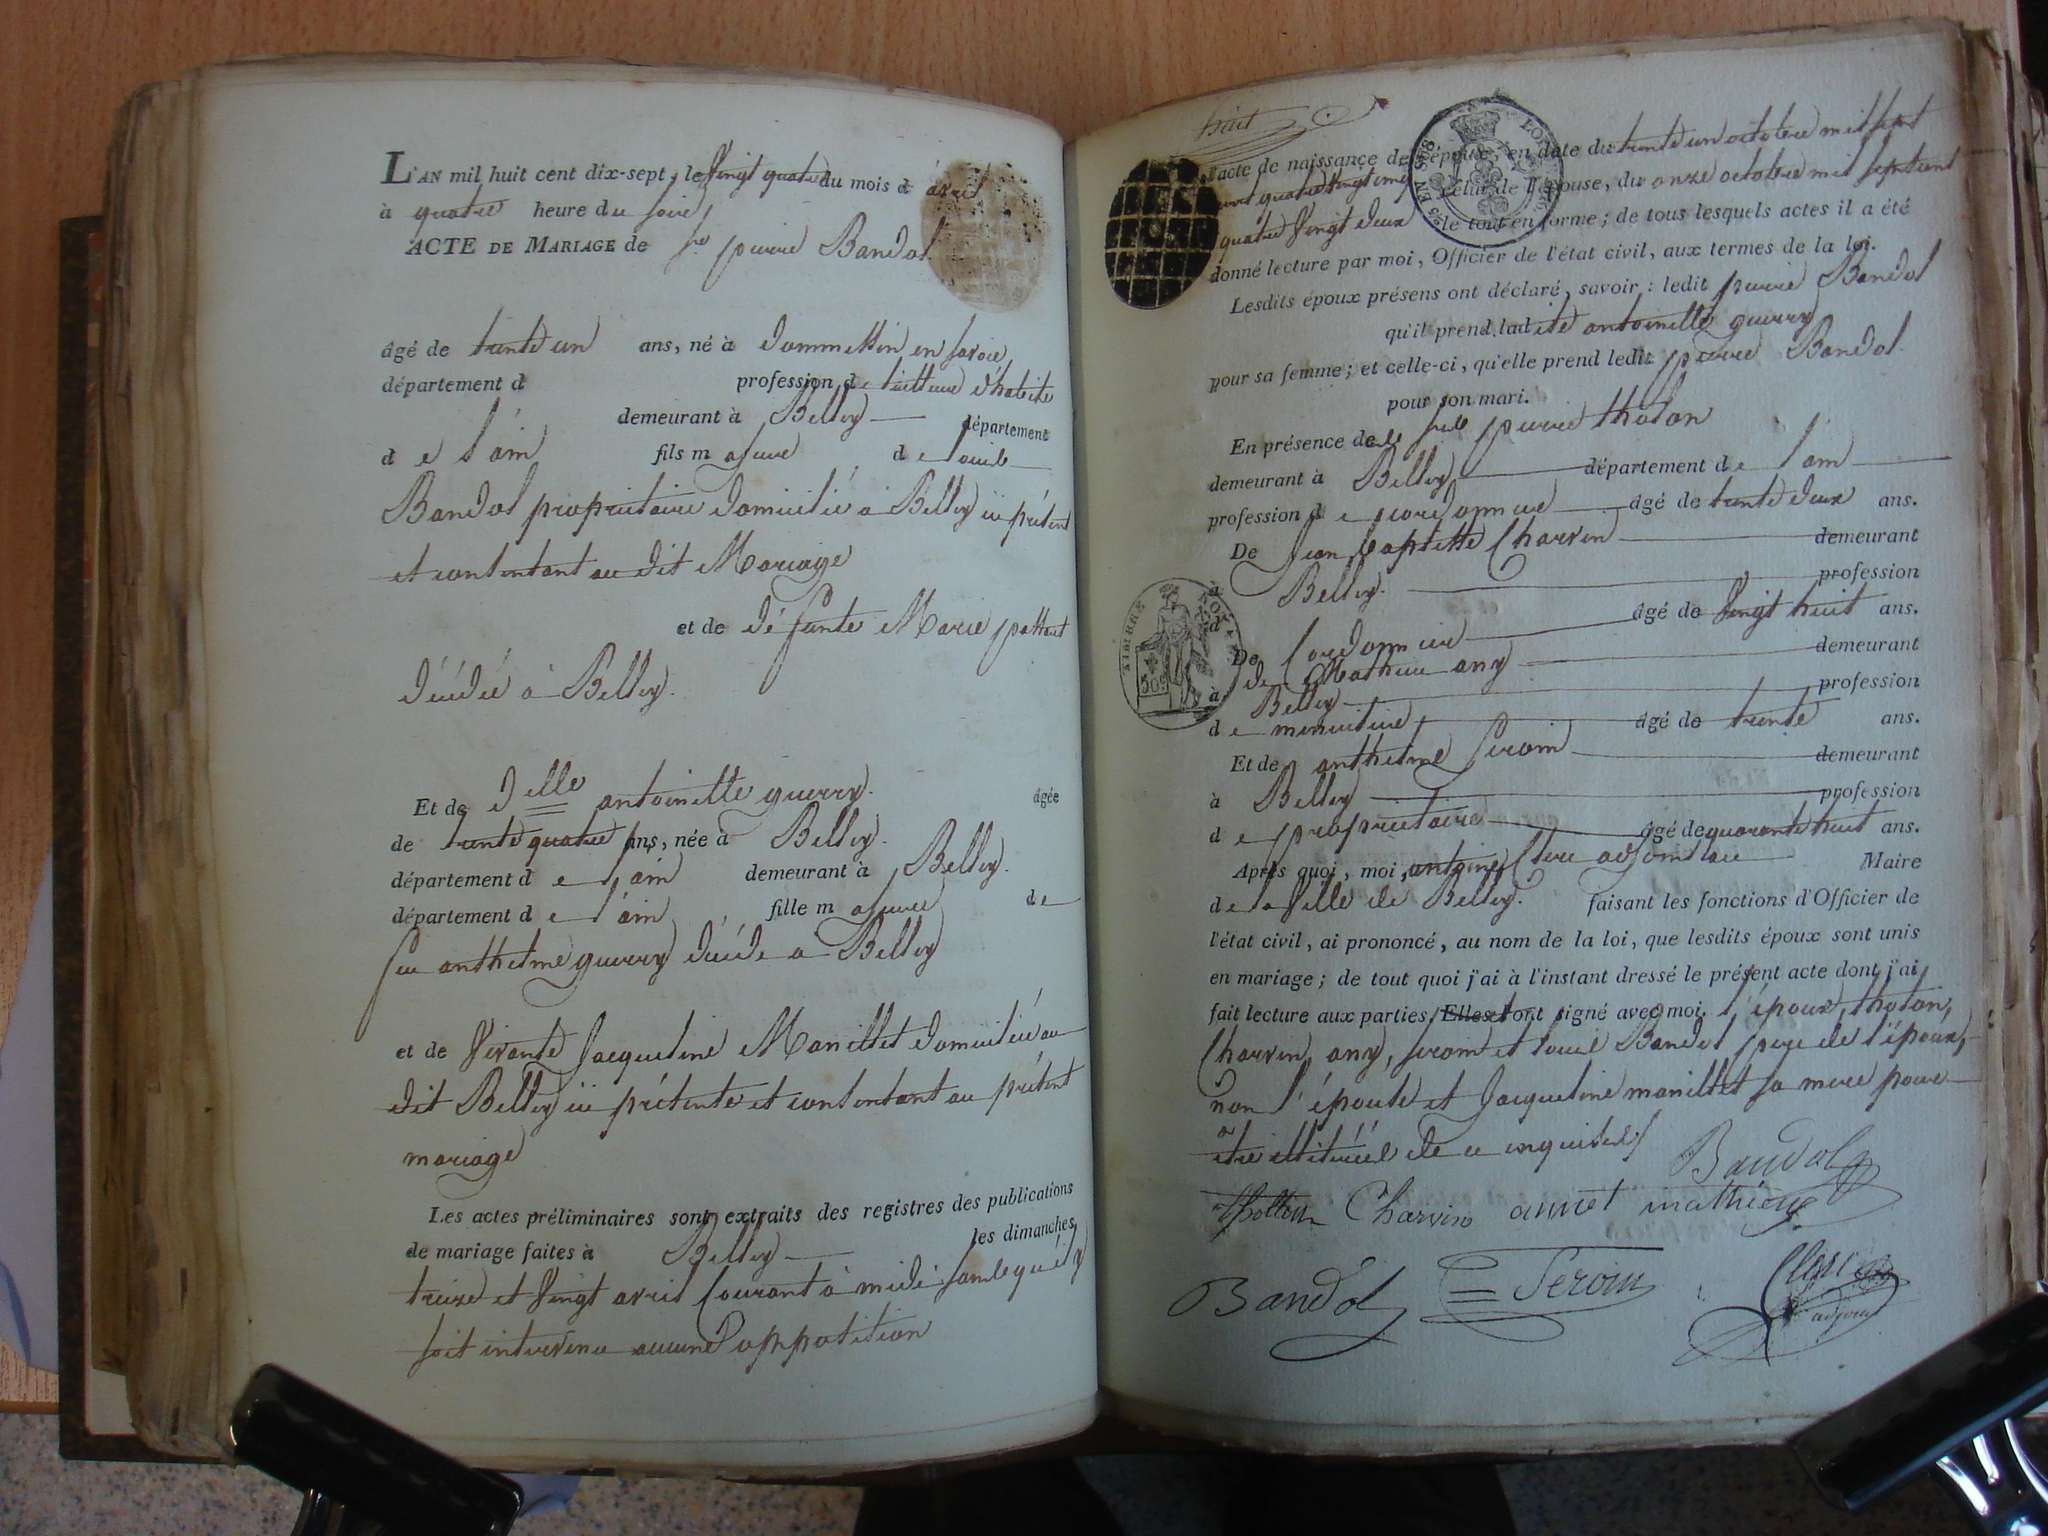 L'AN mil huit cent dix-sept, le Vingt quatre du mois d avril
à quatre heure du soir
ACTE DE MARIAGE de Sr pierre Bandol
âgé de trente un ans, né à Dommessin en savoie
département d profession de tailleur d'habits
demeurant à Belley département
d e l'ain fils majeur de louis
Bandol propriétaire domicilié à Belley ici présent
et consentant au dit Mariage
et de défunte Marie
décédée à Belley.
Et de Delle antoinette guerry. âgée
de trente quatre ans, née à Belley.
département d e l'ain demeurant à Belley.
département d e l'ain fille majeure de
feu anthelme guerry décédé a Belley
et de Vivante Jacqueline Manillet domiciliée au
dit Belley ici présente et consentant au présent
mariage
Les actes préliminaires sont extraits des registres des publications
de mariage faites à Belley les dimanches
treize et Vingt avril courant à midi sans qu'il y
soit intervenu aucune opposition
huit
l'acte de naissance de l'époux, en date du trente un octobre mil sept
cent quatre vingt cinq celui de l'épouse, du onze octobre mil sept cent
quatre Vingt deux le tout en forme; de tous lesquels actes il a été
donné lecture par moi, Officier de l'état civil, aux termes de la loi.
Lesdits époux présens ont déclaré, savoir: ledit pierre Bandol
qu'il prend ladite antoinette guerry
pour sa femme; et celle-ci, qu'elle prend ledit pierre Bandol
pour son mari.
En présence de pierre tholon
demeurant à Belley département de l'ain
profession d e cordonnier âgé de trente deux ans.
De Jean baptiste Charvin demeurant
à Belley. profession
d Cordonnier âgé de Vingt huit ans.
De de Mathieu any demeurant
à Belley profession
d e menuisier âgé de trente ans.
Et de anthelme Seroin demeurant
à Belley profession
d e propriétaire âgé de quarante huit ans.
Après quoi, moi, antoine Clerc adjoint au Maire
de la Ville de Belley. faisant les fonctions d'Officier de
l'état civil, ai prononcé, au nom de la loi, que lesdits époux sont unis
en mariage; de tout quoi j'ai à l'instant dressé le présent acte dont j'ai
fait lecture aux parties. Elles ont signé avec moi. l'époux, tholon,
Charvin, any, Seroin et louis Bandol pere de l'époux,
non l'épouse et Jacqueline manillet sa mere pour
etre illitérées de ce enquises
Bandol
Tholton Charvin annet mathieu
Bandol Seroin
adjoint
TIMBRE ROYAL
50c